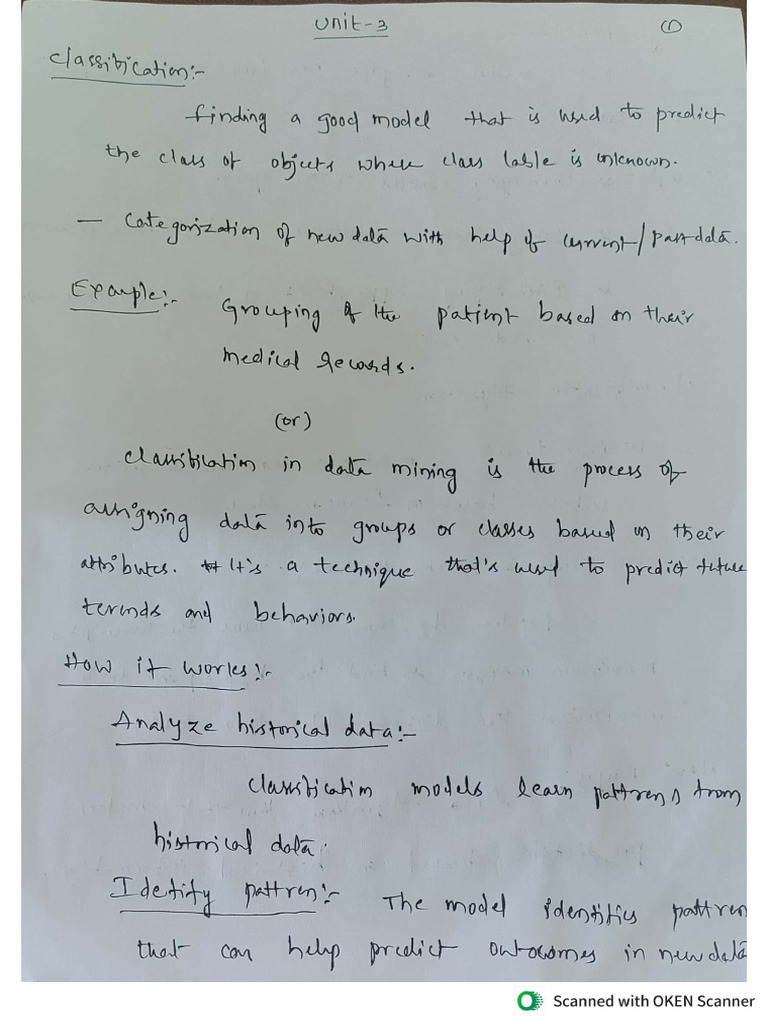 Unit-3
①
Classification:-
finding a good model that is used to predict
the class of objects where class lable is unknown.
— Categorization of new data with help of current/past data.
Example:- Grouping of the patient based on their
medical records.
(or)
Classification in data mining is the process of
assigning data into groups or classes based on their
attributes. It's a technique that's used to predict future
terends and behaviors.
How it works:-
Analyze historical data:-
Classification models learn pattrens from
historical data.
Identify pattren:- The model identifies pattren
that can help predict outocomes in new data
Scanned with OKEN Scanner